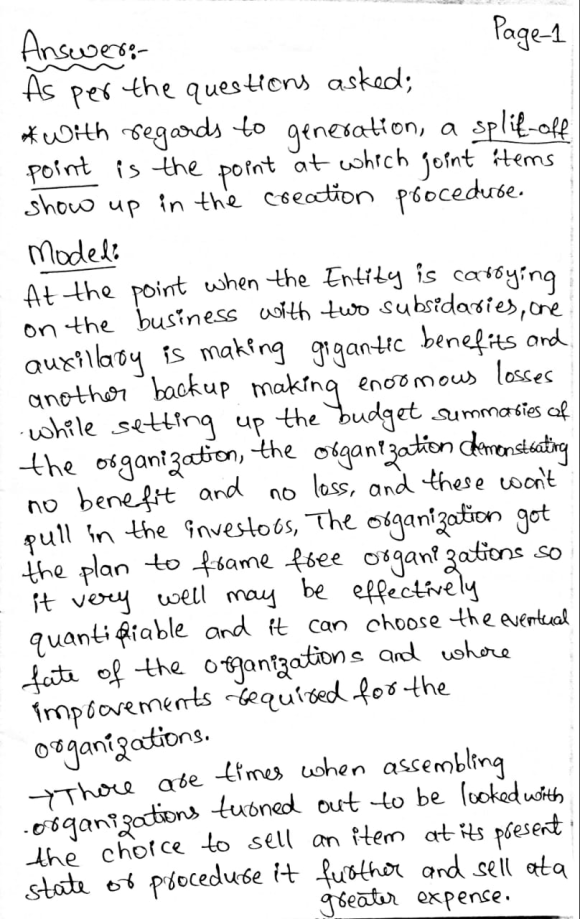 Page-1
Answer:-
As per the questions asked;
*With regards to generation, a split-off
point is the point at which joint items
show up in the creation procedure.
Model:
At the point when the Entity is carrying
on the business with two subsidaries, one
auxillary is making gigantic benefits and
another backup making enormous losses
while setting up the budget summaries of
the organization, the organization demonstrating
no benefit and no loss, and these won't
pull in the investors, The organization got
the plan to frame free organizations so
it very well may be effectively
quantifiable and it can choose the eventual
fate of the organizations and where
improvements required for the
organizations.
→There are times when assembling
organizations turned out to be looked with
the choice to sell an item at its present
state or procedure it further and sell at a
greater expense.